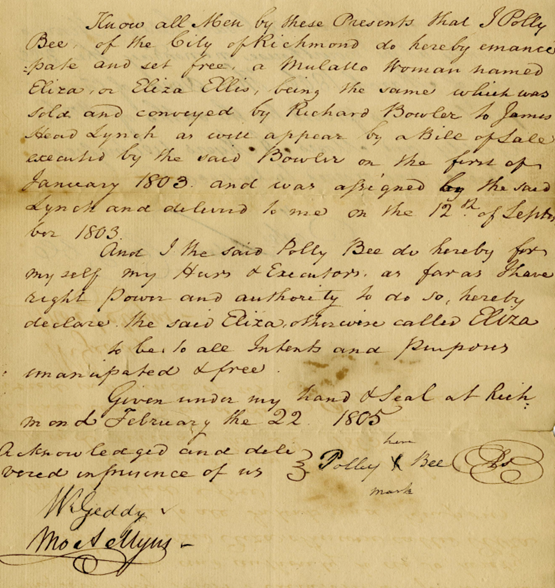 Know all Men by these Presents that I Polly
Bee, of the City of Richmond do hereby emanci
pate and set free, a Mulatto Woman named
Eliza, or Eliza Ellis, being the same which was
sold and conveyed by Richard Bowler to James
Head Lynch as will appear by a Bill of Sale
executed by the said Bowler on the first of
January 1803. and was assigned by the said
Lynch and delivered to me on the 12th of Septem
ber 1803.
And I the said Polly Bee do hereby for
myself my Heirs & Executors. as far as I have
right Power and authority to do so, hereby
declare the said Eliza, otherwise called Eliza
to be to all Intents and Purposes
emancipated & free.
Given under my hand & Seal at Rich
mond February the 22 1805
Acknowledged and deli
vered in presence of us
her
Polly X Bee
mark
W. Geddy